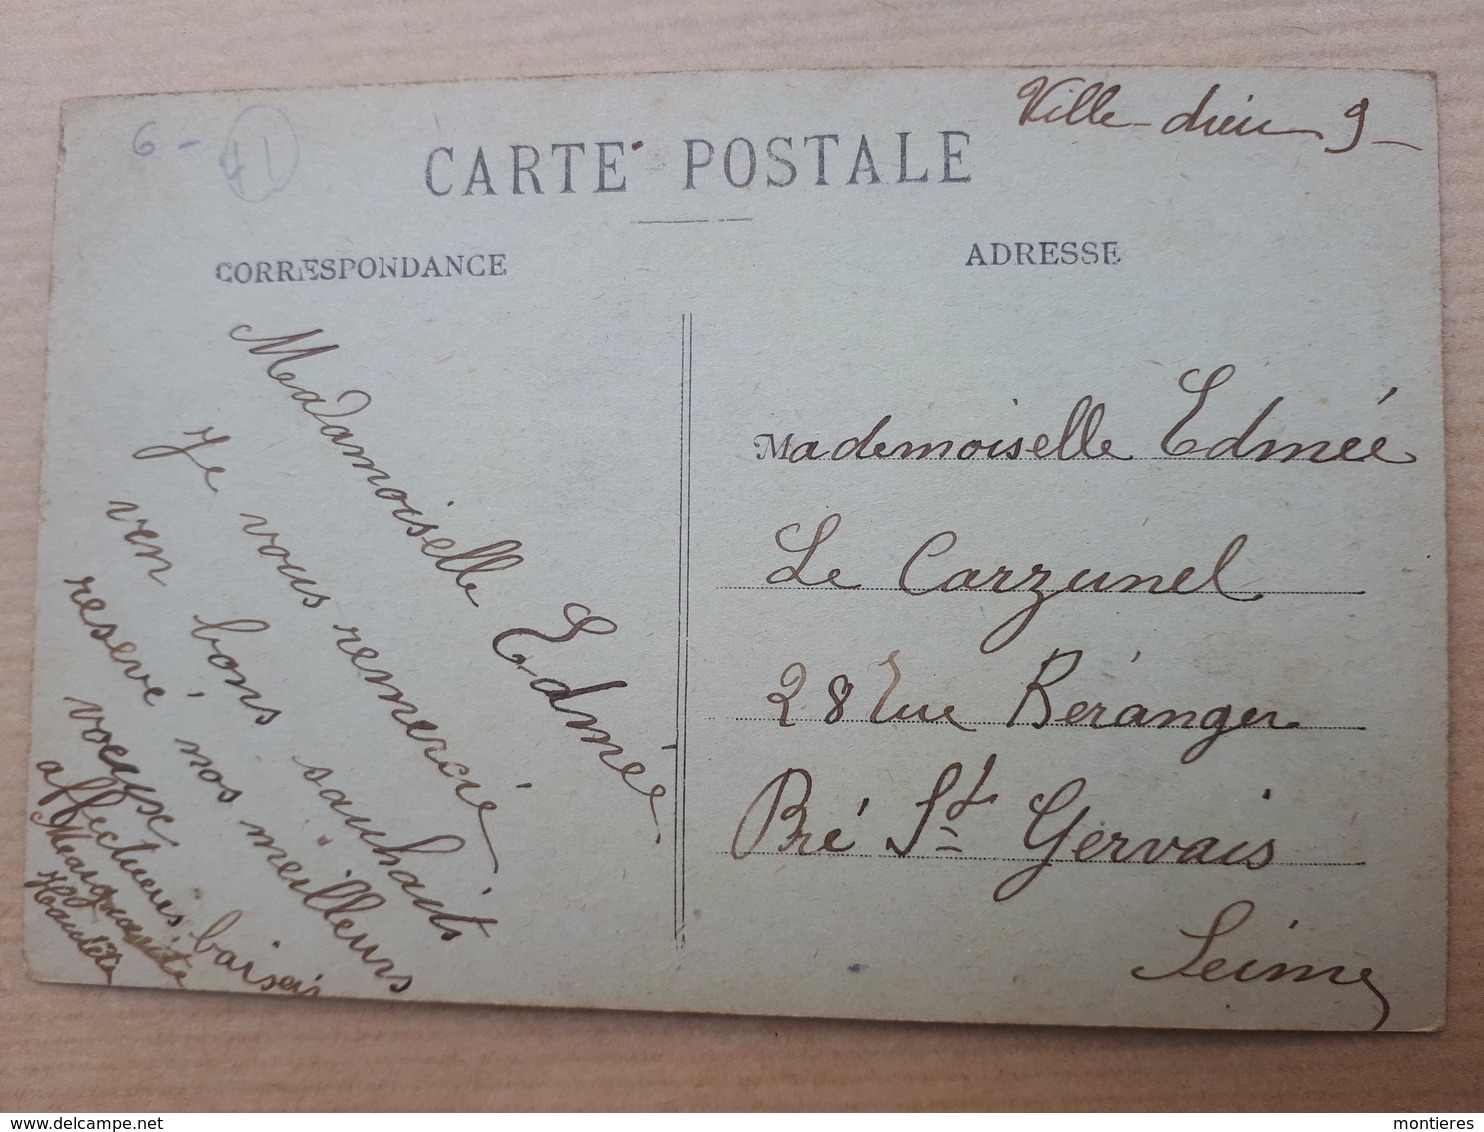 Ville-dieu 9-
6 - 41
CARTE POSTALE
CORRESPONDANCE
ADRESSE
Madamoiselle Edmée
Je vous remercie
ven bons sauhaits
reservé nos meilleurs
voeux
affectueuses baisers
Marguerite
Mademoiselle Edmée
Le Carzunel
28 rue Béranger
Pré St Gervais
Seine
montieres